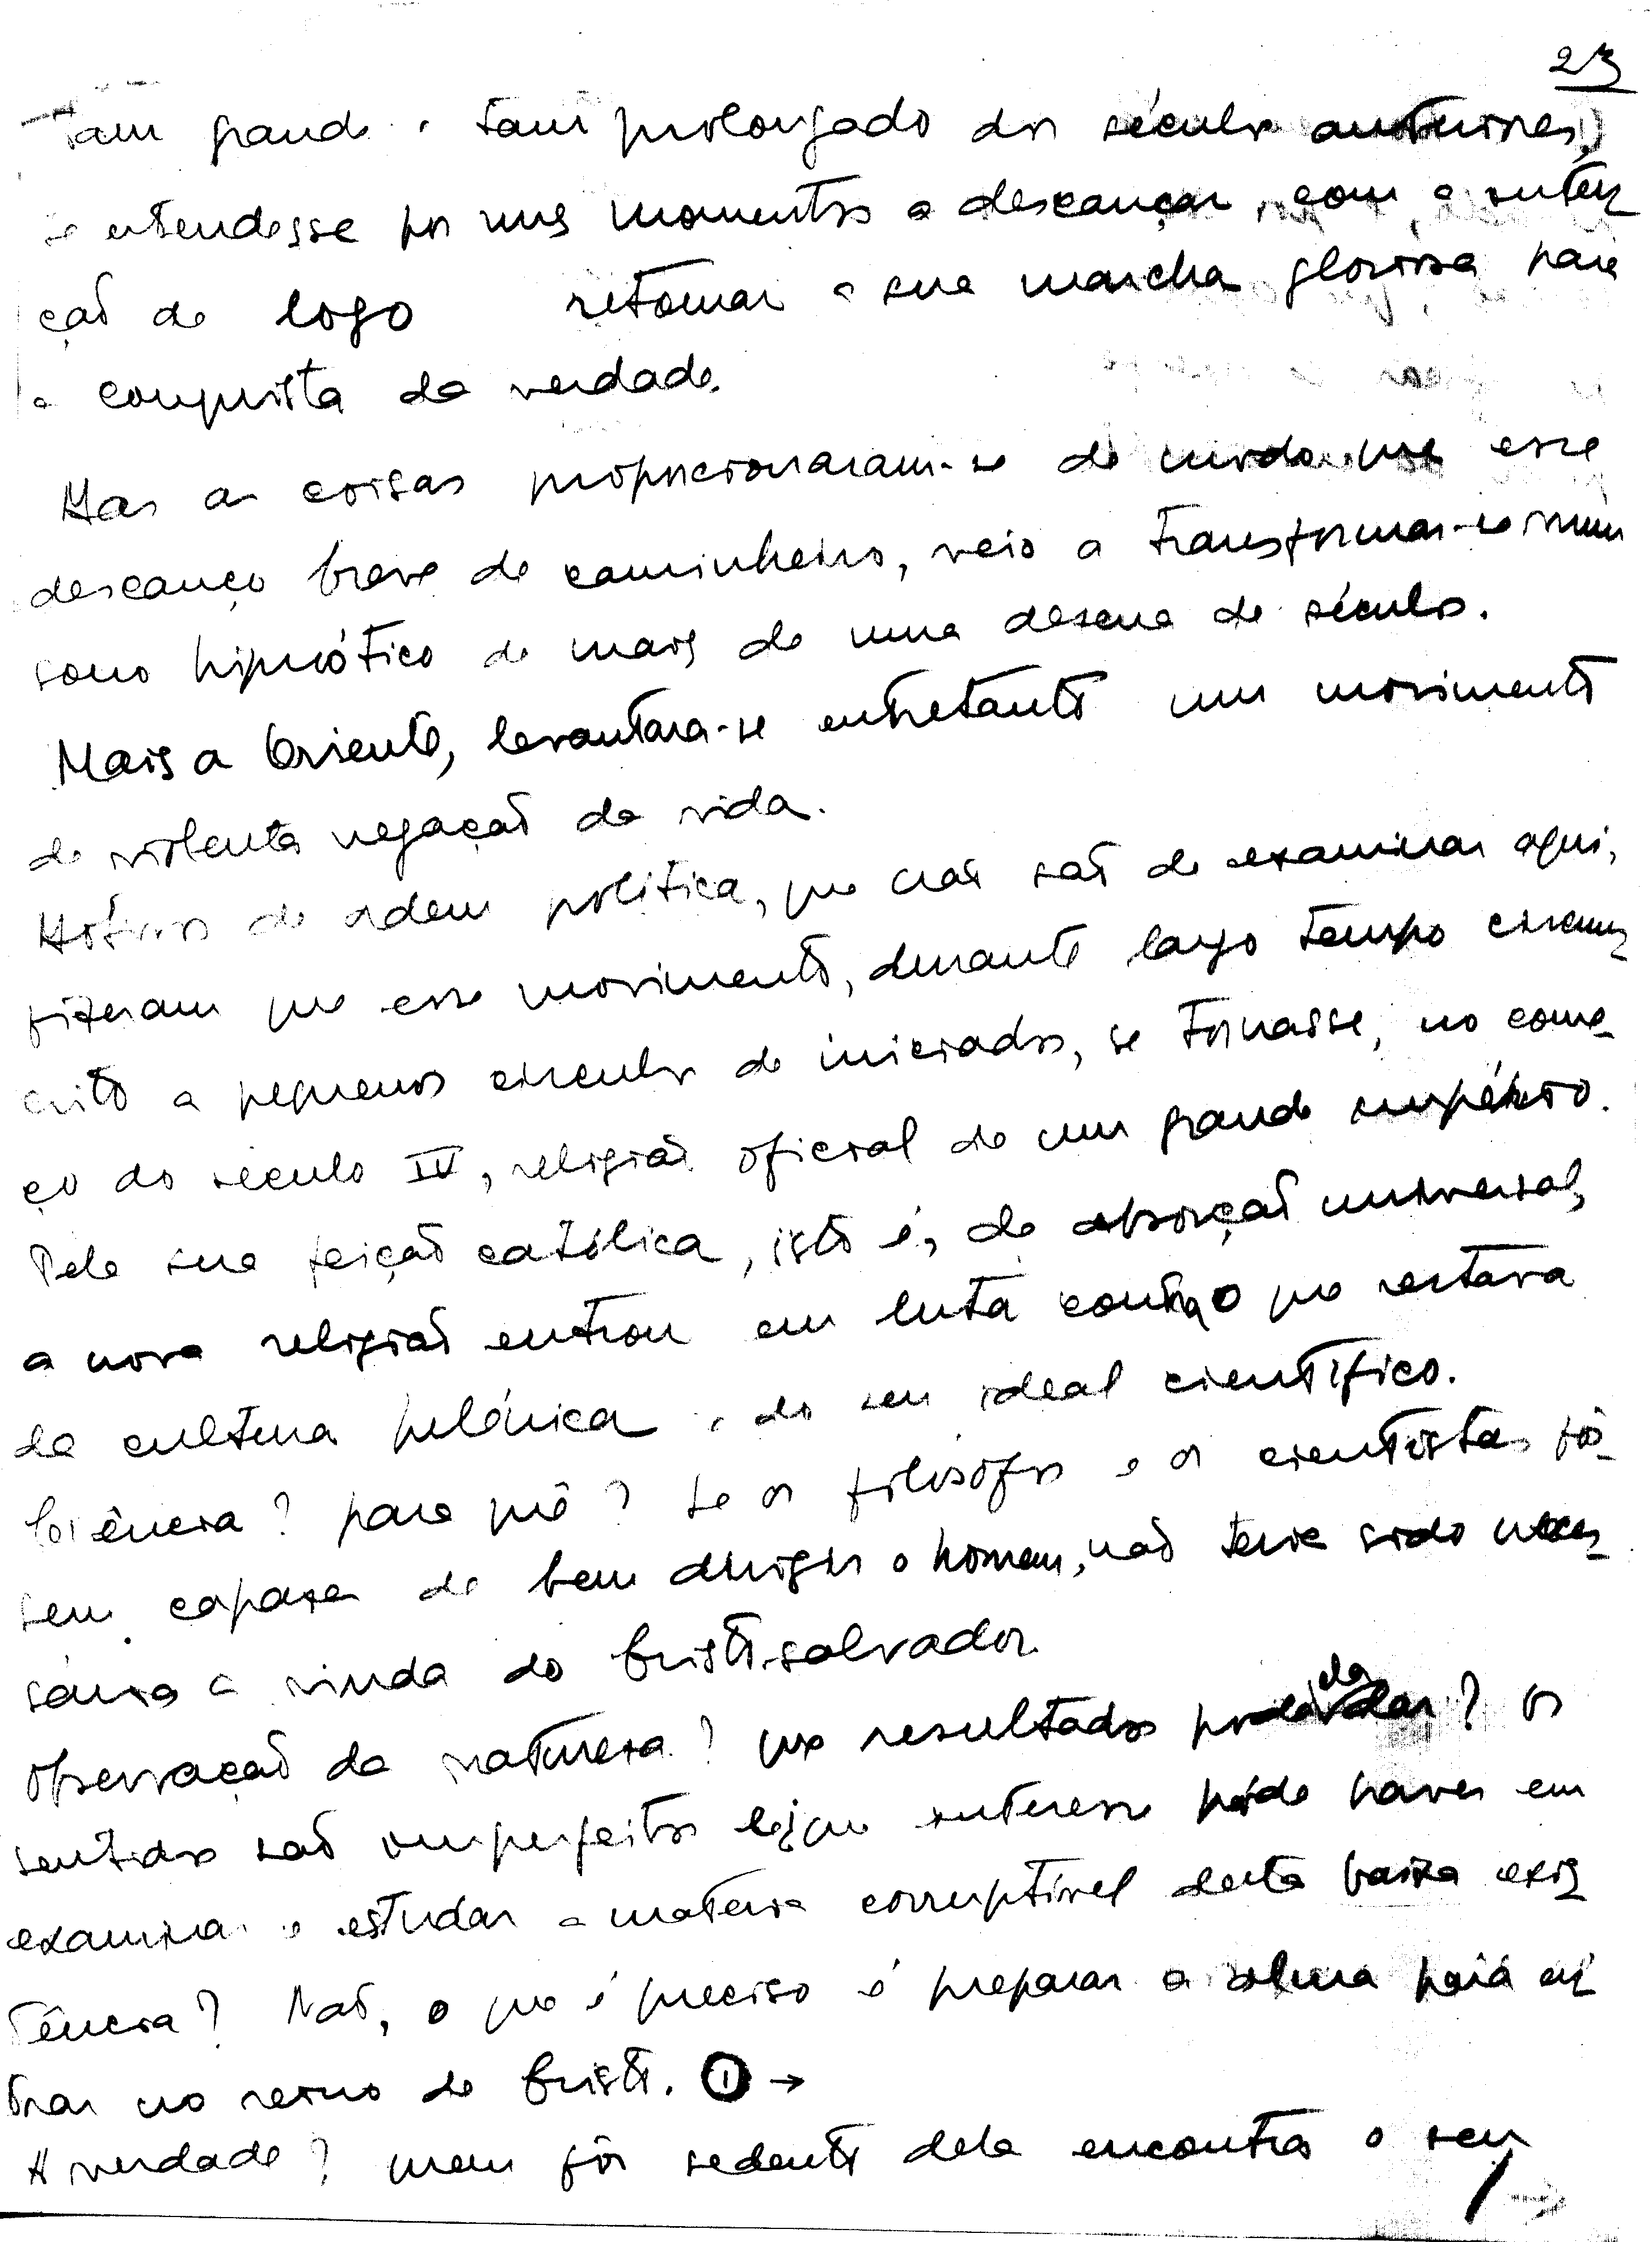 23
Tam grande e tam prolongado dos séculos anteriores,
se estendesse por uns momentos a descançar, com a inten
ção de logo retomar a sua marcha gloriosa para
a conquista da verdade.
Mas as coisas proporcionaram-se de modo que esse
descanço breve de caminheiro, veio a transformar-se num
sono hipnótico de mais de uma dezena de séculos.
Mais a Oriente, levantara-se entretanto um movimento
de violenta negação da vida.
Motivos de ordem política, que não são de examinar aqui,
fizeram que esse movimento, durante largo tempo circuns
crito a pequenos circulos de iniciados, se tornasse, no come-
ço do século IV, religião oficial de um grande império.
Pela sua feição católica, isto é, de absorção universal,
a nova religião entrou em luta contra o que restava
da cultura helénica e do seu ideal científico.
Ciência? para quê? Se os filósofos e os cientistas fôs-
sem capazes de bem dirigir o homem, não teria sido neces-
sária a vinda do Cristo-salvador.
Observação da natureza? que resultados poderá ela dar? Os
sentidos são imperfeitos e, que interesse póde haver em
examinar e estudar a matéria corruptível desta baixa exis
tência? Não, o que é preciso é preparar a alma para en
trar no reino de Cristo. ① →
A verdade? quem fôr sedento dela encontra o seu